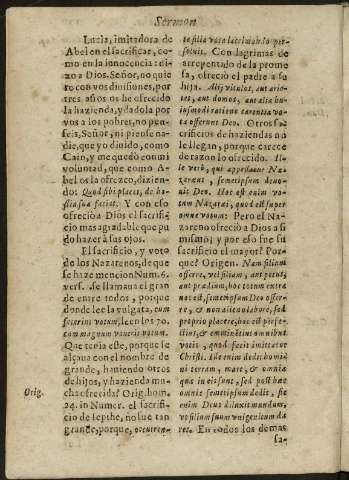 Sermon
Luzia, imitadora de
Abel en el sacrificar, co-
mo en la innocencia: di-
zo a Dios. Señor, no quie
ro con vos diuisiones, por
tres años os he ofrecido
la hazienda, y dadola por
vos a los pobres, no pen-
seis, Señor, ni piense na-
die, que yo diuido, como
Cain, y me quedo con mi
voluntad, que como A-
bel os la ofrezco, dizien-
do: Quod tibi places, de ho-
stia tua facias. Y con eso
ofreciò a Dios el sacrifi-
cio mas agradable que pu
do hazer à sus ojos.
El sacrificio, y voto
de los Nazarenos, de que
se haze mencion Num. 6.
vers. se llamaua el gran
de entre todos, porque
donde lee la vulgata, cum
fecerint votum, leen los 70.
cum magnum vouerit votum.
Que tenia este, porque se
alçaua con el nombre de
grande, haziendo otros
de hijos, y hazienda mu-
cha ofrecidas? Orig. hom.
24. in Numer. el sacrifi-
cio de Iepthe, no fue tan
grande, porque, occurren-
Orig.
te filia vota lacrimando per-
soluit. Con lagrimas de
arrepentado de la prome
sa, ofreciò el padre a su
hija. Alij vitulos, aut arie-
tes, aut domos, aut alia hu-
iusmodi ratione carentia vo-
ta offerunt Deo. Otros sa-
crificios de haziendas no
le llegan, porque carece
de razon lo ofrecido. Il-
le verò, qui appellatur Na-
zaraeus, semetipsum deuo-
uit Deo. Hoc est enim vo-
tum Nazaraei, quod est super
omne votum: Pero el Na-
zareno ofreciò a Dios a si
mismo; y por eso fue su
sacrificio el mayor? Por
que? Origen. Nam filium
offerre, vel filiam, aut pecus,
aut praedium, hoc totum extra
nos est, semetipsum Deo offer-
re, & non alieno labore, sed
proprio placere, hoc est perfe-
ctius, & eminentius omnibus
votis, quod fecit imitator
Christi. Ille enim dedit homi-
ni terram, mare, & omnia
quae in eis sunt, sed post haec
omnia semetipsum dedit, sic
enim Deus dilexit mundum,
vt filium suum vnigenitum da-
ret. En todos los demas
sa-